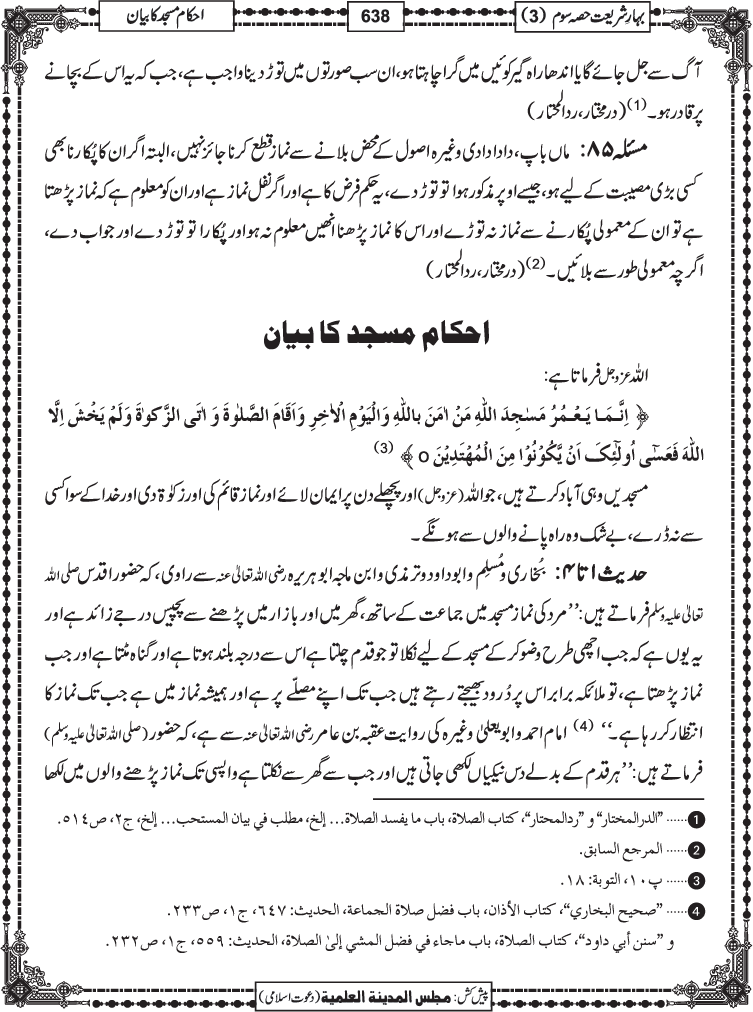 بہارِ شریعت حصہ سوم (3)
638
احکام مسجد کا بیان
آگ سے جل جائے گا یا اندھا راہ گیر کوئیں میں گرا چاہتا ہو، ان سب صورتوں میں توڑ دینا واجب ہے، جب کہ یہ اس کے بچانے
پر قادر ہو۔ (1) (درمختار، ردالمحتار)
مسئلہ ۸۵: ماں باپ، دادا دادی وغیرہ اصول کے محض بلانے سے نماز قطع کرنا جائز نہیں، البتہ اگر ان کا پُکارنا بھی
کسی بڑی مصیبت کے لیے ہو، جیسے اوپر مذکور ہوا تو توڑ دے، یہ حکم فرض کا ہے اور اگر نفل نماز ہے اور ان کو معلوم ہے کہ نماز پڑھتا
ہے تو ان کے معمولی پُکارنے سے نماز نہ توڑے اور اس کا نماز پڑھنا انھیں معلوم نہ ہو اور پُکارا تو توڑ دے اور جواب دے،
اگرچہ معمولی طور سے بلائیں۔ (2) (درمختار، ردالمحتار)
احکام مسجد کا بیان
اللہ عزوجل فرماتا ہے:
﴿ اِنَّمَا یَعْمُرُ مَسٰجِدَ اللّٰهِ مَنْ اٰمَنَ بِاللّٰهِ وَالْیَوْمِ الْاٰخِرِ وَاَقَامَ الصَّلٰوةَ وَ اٰتَی الزَّکٰوةَ وَلَمْ یَخْشَ اِلَّا
اللّٰهَ فَعَسٰۤی اُولٰٓئِکَ اَنْ یَّکُوْنُوْا مِنَ الْمُهْتَدِیْنَ o ﴾ (3)
مسجدیں وہی آباد کرتے ہیں، جو اللہ (عزوجل) اور پچھلے دن پر ایمان لائے اور نماز قائم کی اور زکوٰۃ دی اور خدا کے سوا کسی
سے نہ ڈرے، بے شک وہ راہ پانے والوں سے ہونگے۔
حدیث ۱ تا ۴: بُخاری و مُسلِم و ابو داود و ترمذی و ابن ماجہ ابو ہریرہ رضی اللہ تعالیٰ عنہ سے راوی، کہ حضور اقدس صلی اللہ
تعالیٰ علیہ وسلم فرماتے ہیں: ’’مرد کی نماز مسجد میں جماعت کے ساتھ، گھر میں اور بازار میں پڑھنے سے پچیس درجے زائد ہے اور
یہ یوں ہے کہ جب اچھی طرح وضو کر کے مسجد کے لیے نکلا تو جو قدم چلتا ہے اس سے درجہ بلند ہوتا ہے اور گناہ مٹتا ہے اور جب
نماز پڑھتا ہے، تو ملائکہ برابر اس پر دُرود بھیجتے رہتے ہیں جب تک اپنے مصلّے پر ہے اور ہمیشہ نماز میں ہے جب تک نماز کا
انتظار کر رہا ہے۔‘‘ (4) امام احمد و ابویعلیٰ وغیرہ کی روایت عقبہ بن عامر رضی اللہ تعالیٰ عنہ سے ہے، کہ حضور (صلی اللہ تعالیٰ علیہ وسلم)
فرماتے ہیں: ’’ہر قدم کے بدلے دس نیکیاں لکھی جاتی ہیں اور جب سے گھر سے نکلتا ہے واپسی تک نماز پڑھنے والوں میں لکھا
1 ...... "الدرالمختار" و "ردالمحتار"، کتاب الصلاة، باب ما یفسد الصلاة... إلخ، مطلب في بیان المستحب... إلخ، ج٢، ص٥١٤.
2 ...... المرجع السابق.
3 ...... پ١٠، التوبة: ١٨.
4 ...... "صحیح البخاري"، کتاب الأذان، باب فضل صلاة الجماعة، الحدیث: ٦٤٧، ج١، ص٢٣٣.
و "سنن أبي داود"، کتاب الصلاة، باب ماجاء في فضل المشي إلیٰ الصلاة، الحدیث: ٥٥٩، ج١، ص٢٣٢.
پیش کش: مجلس المدینة العلمیة (دعوت اسلامی)